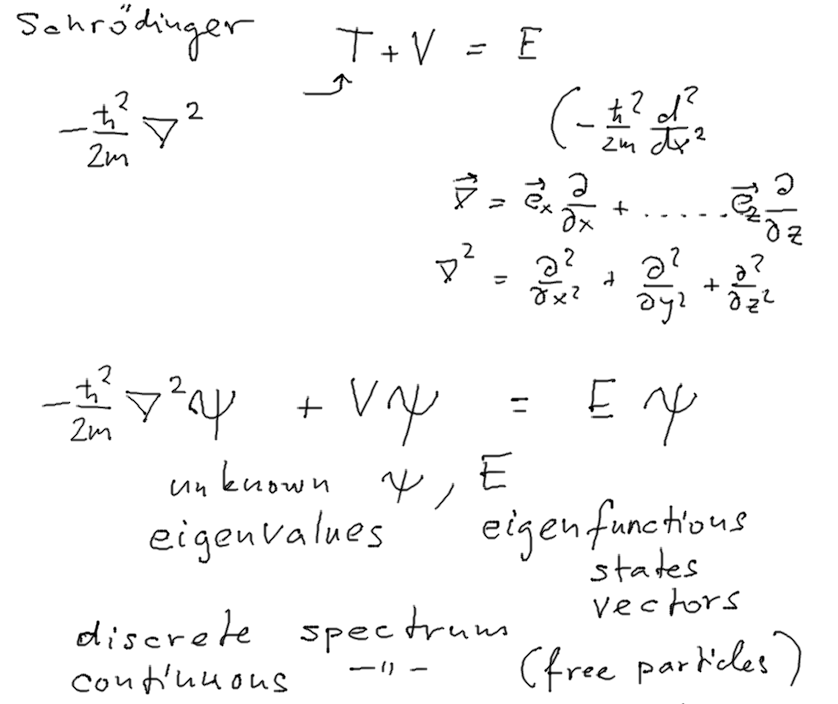 Schrödinger T + V = E
-ħ²/2m ∇² (-ħ²/2m d²/dx²
∇⃗ = e⃗ₓ ∂/∂x + ...... e⃗_z ∂/∂z
∇² = ∂²/∂x² + ∂²/∂y² + ∂²/∂z²
-ħ²/2m ∇²ψ + Vψ = Eψ
unknown ψ, E
eigenvalues eigenfunctions
states
vectors
discrete spectrum
continuous -"- (free particles)